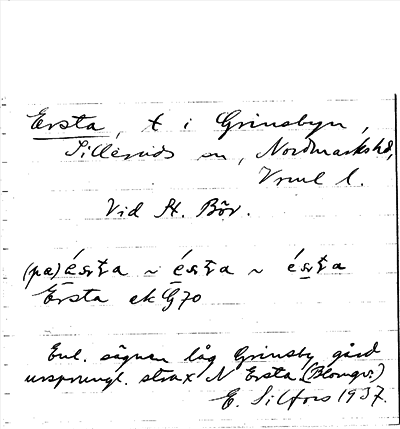 Ersta, t i Grinsbyn,
Silleruds sn, Nordmarks hd,
Vrml l.
Vid St. Bör.
(pa) é̱sta ~ é̱sta ~ é̱sta
Ersta ek G 70
Enl. sägnen låg Grinsby gård
ursprungl. strax N Ersta (Blomqv.)
E. Silfors 1937.